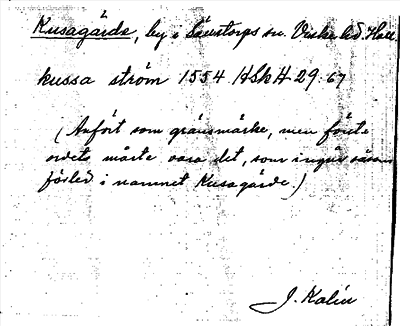 Kusagärde, by i Sönstorps sn. Viske hd. Hall.
kussa ström 1554 HSkH 29.67
(Anfört som gränsmärke, men förete
ordet måste vara det, som ingår såsom
förled i namnet Kusagärde.)
J. Kalén